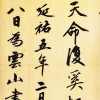 天命復奚
延祐五年二月
八日為雲小書